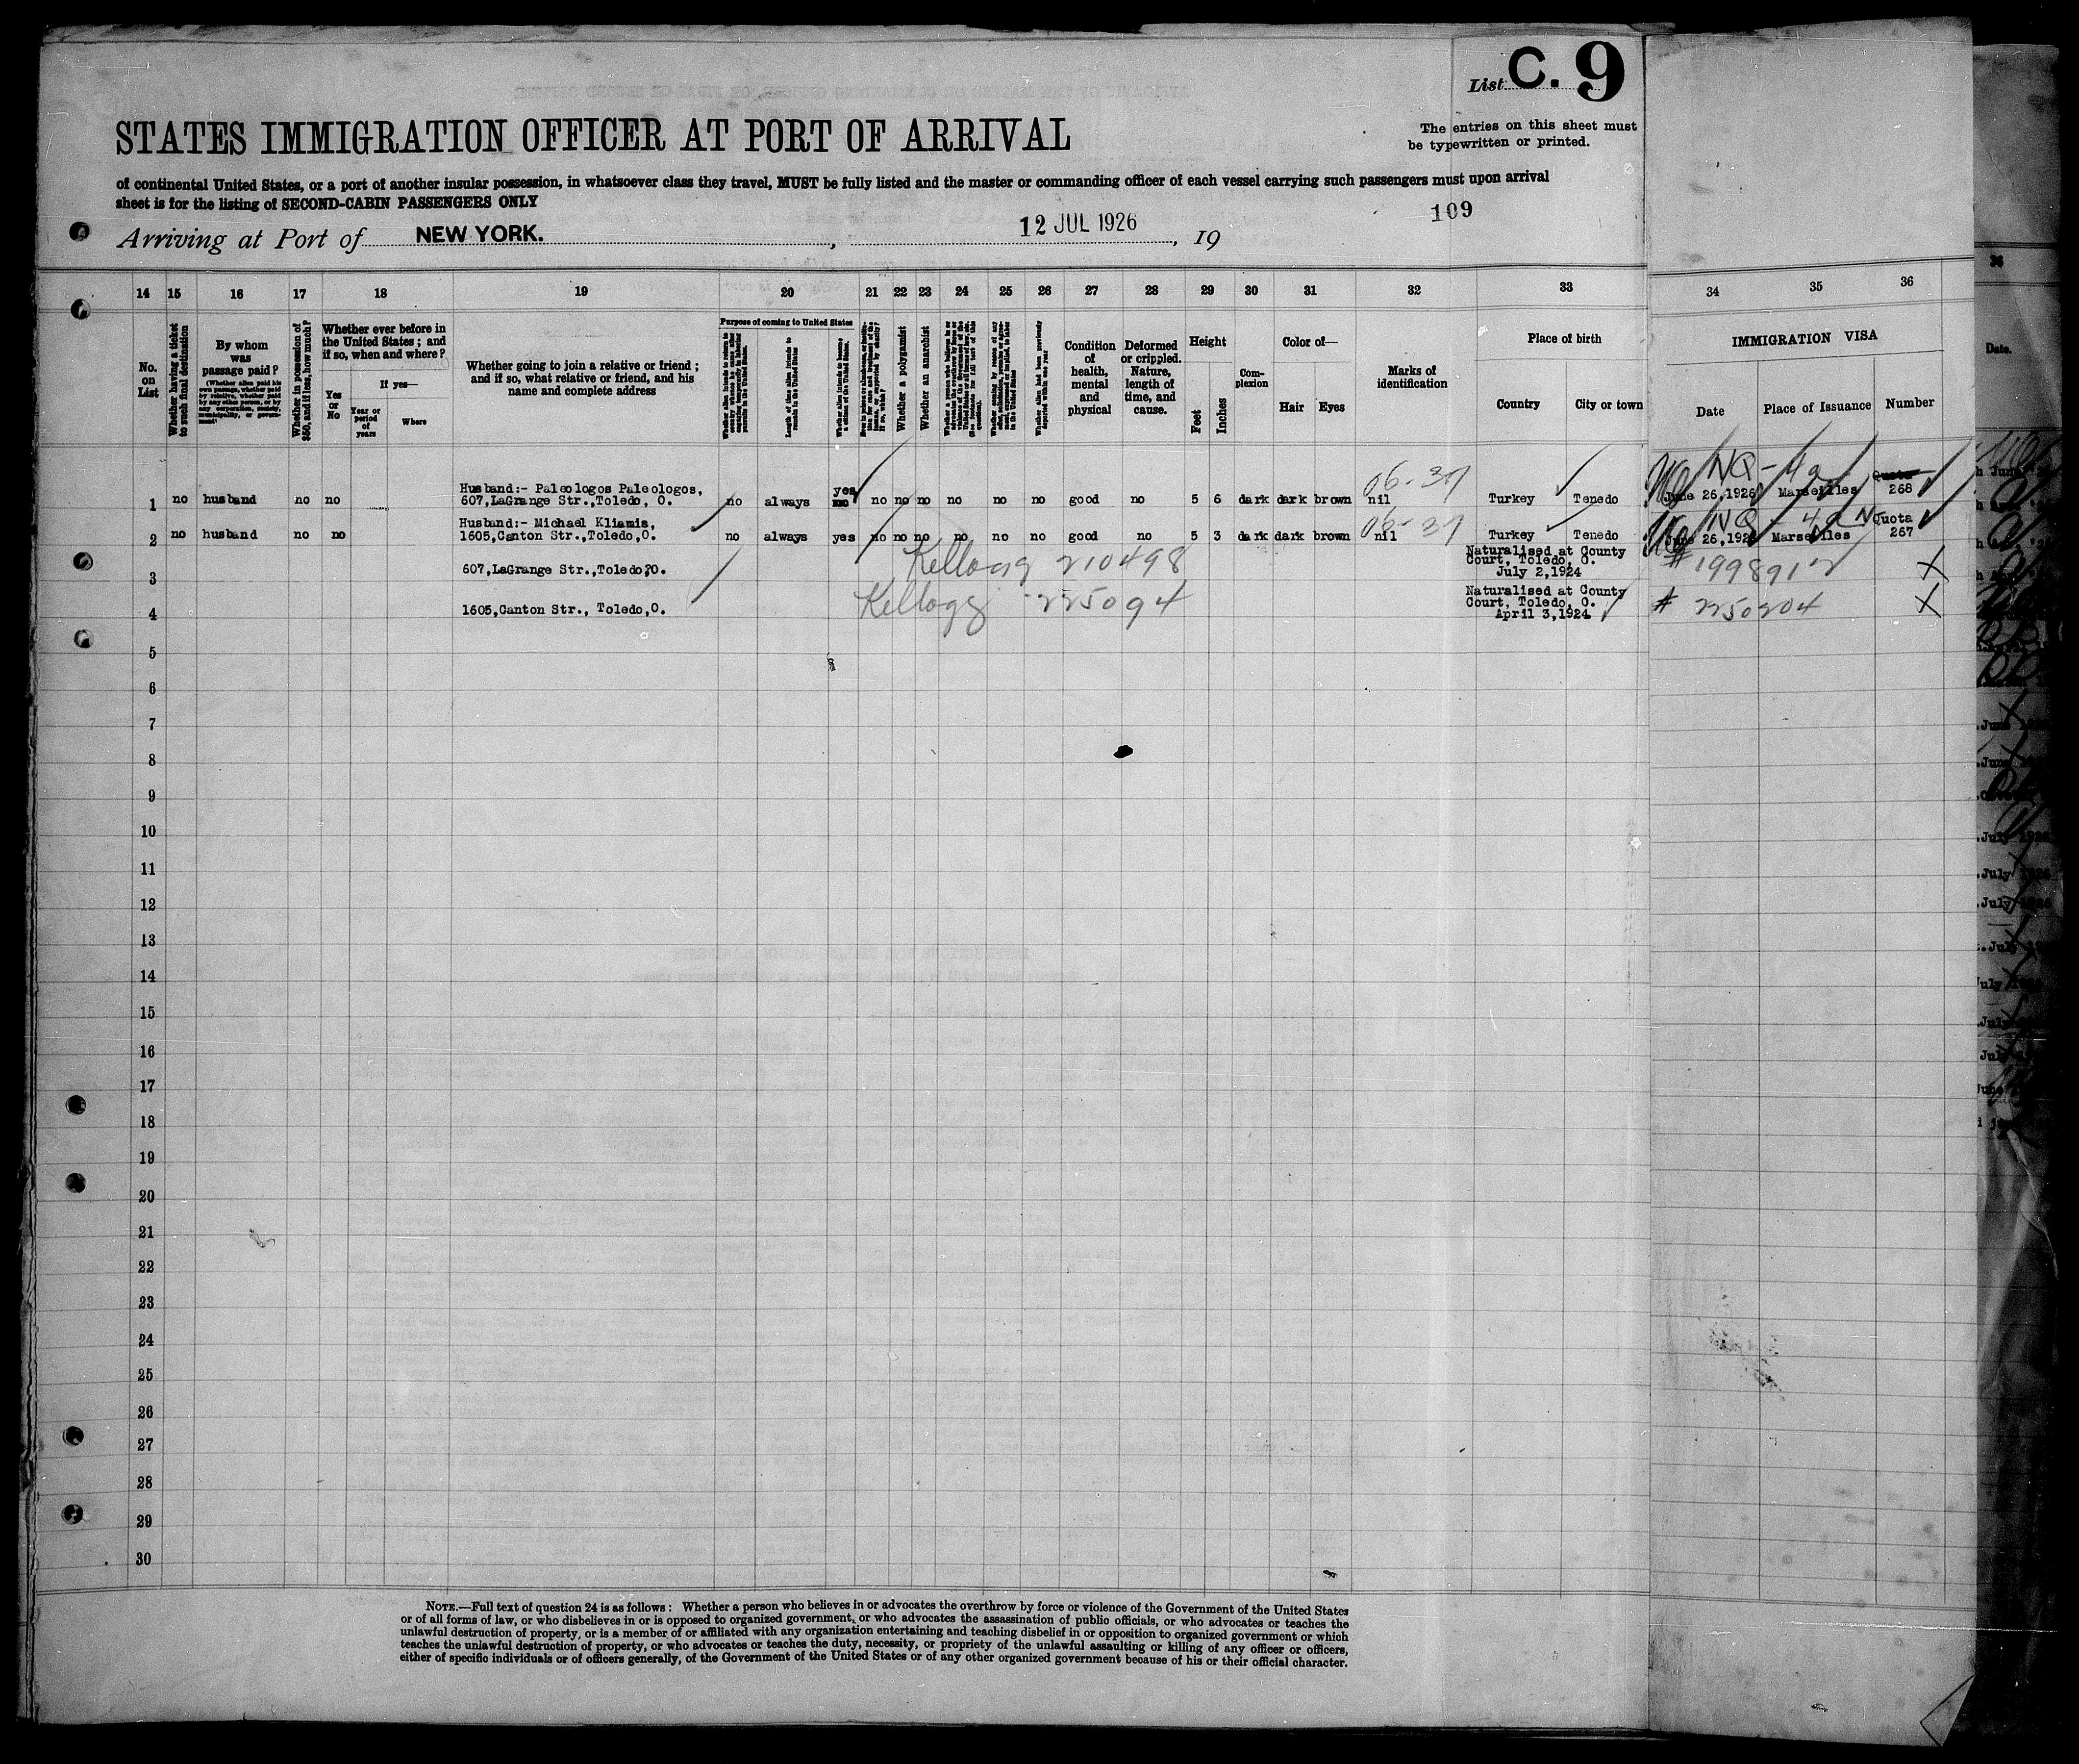 List C. 9
STATES IMMIGRATION OFFICER AT PORT OF ARRIVAL
The entries on this sheet must
be typewritten or printed.
of continental United States, or a port of another insular possession, in whatsoever class they travel, MUST be fully listed and the master or commanding officer of each vessel carrying such passengers must upon arrival
sheet is for the listing of SECOND-CABIN PASSENGERS ONLY
109
Arriving at Port of NEW YORK. , 12 JUL 1926 , 19
14 15 16 17 18 19 20 21 22 23 24 25 26 27 28 29 30 31 32 33 34 35 36
No. on List
Whether having a ticket to such final destination
By whom was passage paid?
(Whether alien paid his own passage, whether paid by relative, whether paid by any other person, or by any corporation, society, municipality, or government)
Whether in possession of $50, and if less, how much?
Whether ever before in the United States; and if so, when and where?
Yes or No
If yes—
Year or period of years
Where
Whether going to join a relative or friend; and if so, what relative or friend, and his name and complete address
Purpose of coming to United States
Length of time alien intends to remain in the United States
Whether alien intends to become a citizen of the United States.
Whether a polygamist
Whether an anarchist
Whether alien had been previously deported within one year
Condition of health, mental and physical
Deformed or crippled. Nature, length of time, and cause.
Height
Feet
Inches
Complexion
Color of—
Hair Eyes
Marks of identification
Place of birth
Country City or town
IMMIGRATION VISA
Date Place of Issuance Number
Date.
06-37 NQ-4a
1 no husband no no Husband:- Paleologos Paleologos, 607,LaGrange Str.,Toledo, O. no always yes no no no no no no no good no 5 6 dark dark brown nil Turkey Tenedo June 26,1926 Marseilles Quota 268
06-37 NQ-4a
2 no husband no no Husband:- Michael Kliamis, 1605,Canton Str.,Toledo,O. no always yes no no no no no no good no 5 3 dark dark brown nil Turkey Tenedo June 26,1926 Marseilles N Quota 267
3 607,LaGrange Str.,Toledo,O. Kellogg 210498 Naturalised at County Court, Toledo, O. July 2,1924 # X
4 1605,Canton Str., Toledo,O. Kellogg 225094 Naturalised at County Court, Toledo, O. April 3,1924 # 2250204 X
5
6
7
8
9
10
11
12
13
14
15
16
17
18
19
20
21
22
23
24
25
26
27
28
29
30
NOTE.—Full text of question 24 is as follows: Whether a person who believes in or advocates the overthrow by force or violence of the Government of the United States
or of all forms of law, or who disbelieves in or is opposed to organized government, or who advocates the assassination of public officials, or who advocates or teaches the
unlawful destruction of property, or is a member of or affiliated with any organization entertaining and teaching disbelief in or opposition to organized government or which
teaches the unlawful destruction of property, or who advocates or teaches the duty, necessity, or propriety of the unlawful assaulting or killing of any officer or officers,
either of specific individuals or of officers generally, of the Government of the United States or of any other organized government because of his or their official character.